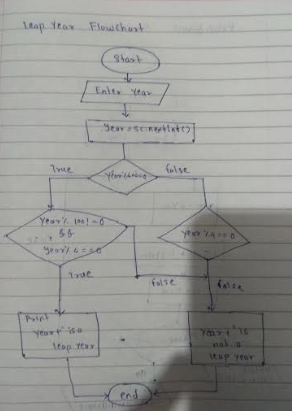 Leap Year Flowchart
Start
Enter Year
Year=sc.nextInt()
True
false
Year%100!=0
&&
Year%4==0
Year%4==0
True
false
false
Print
Year+" is a
leap year
Year+" is
not a
leap year
end